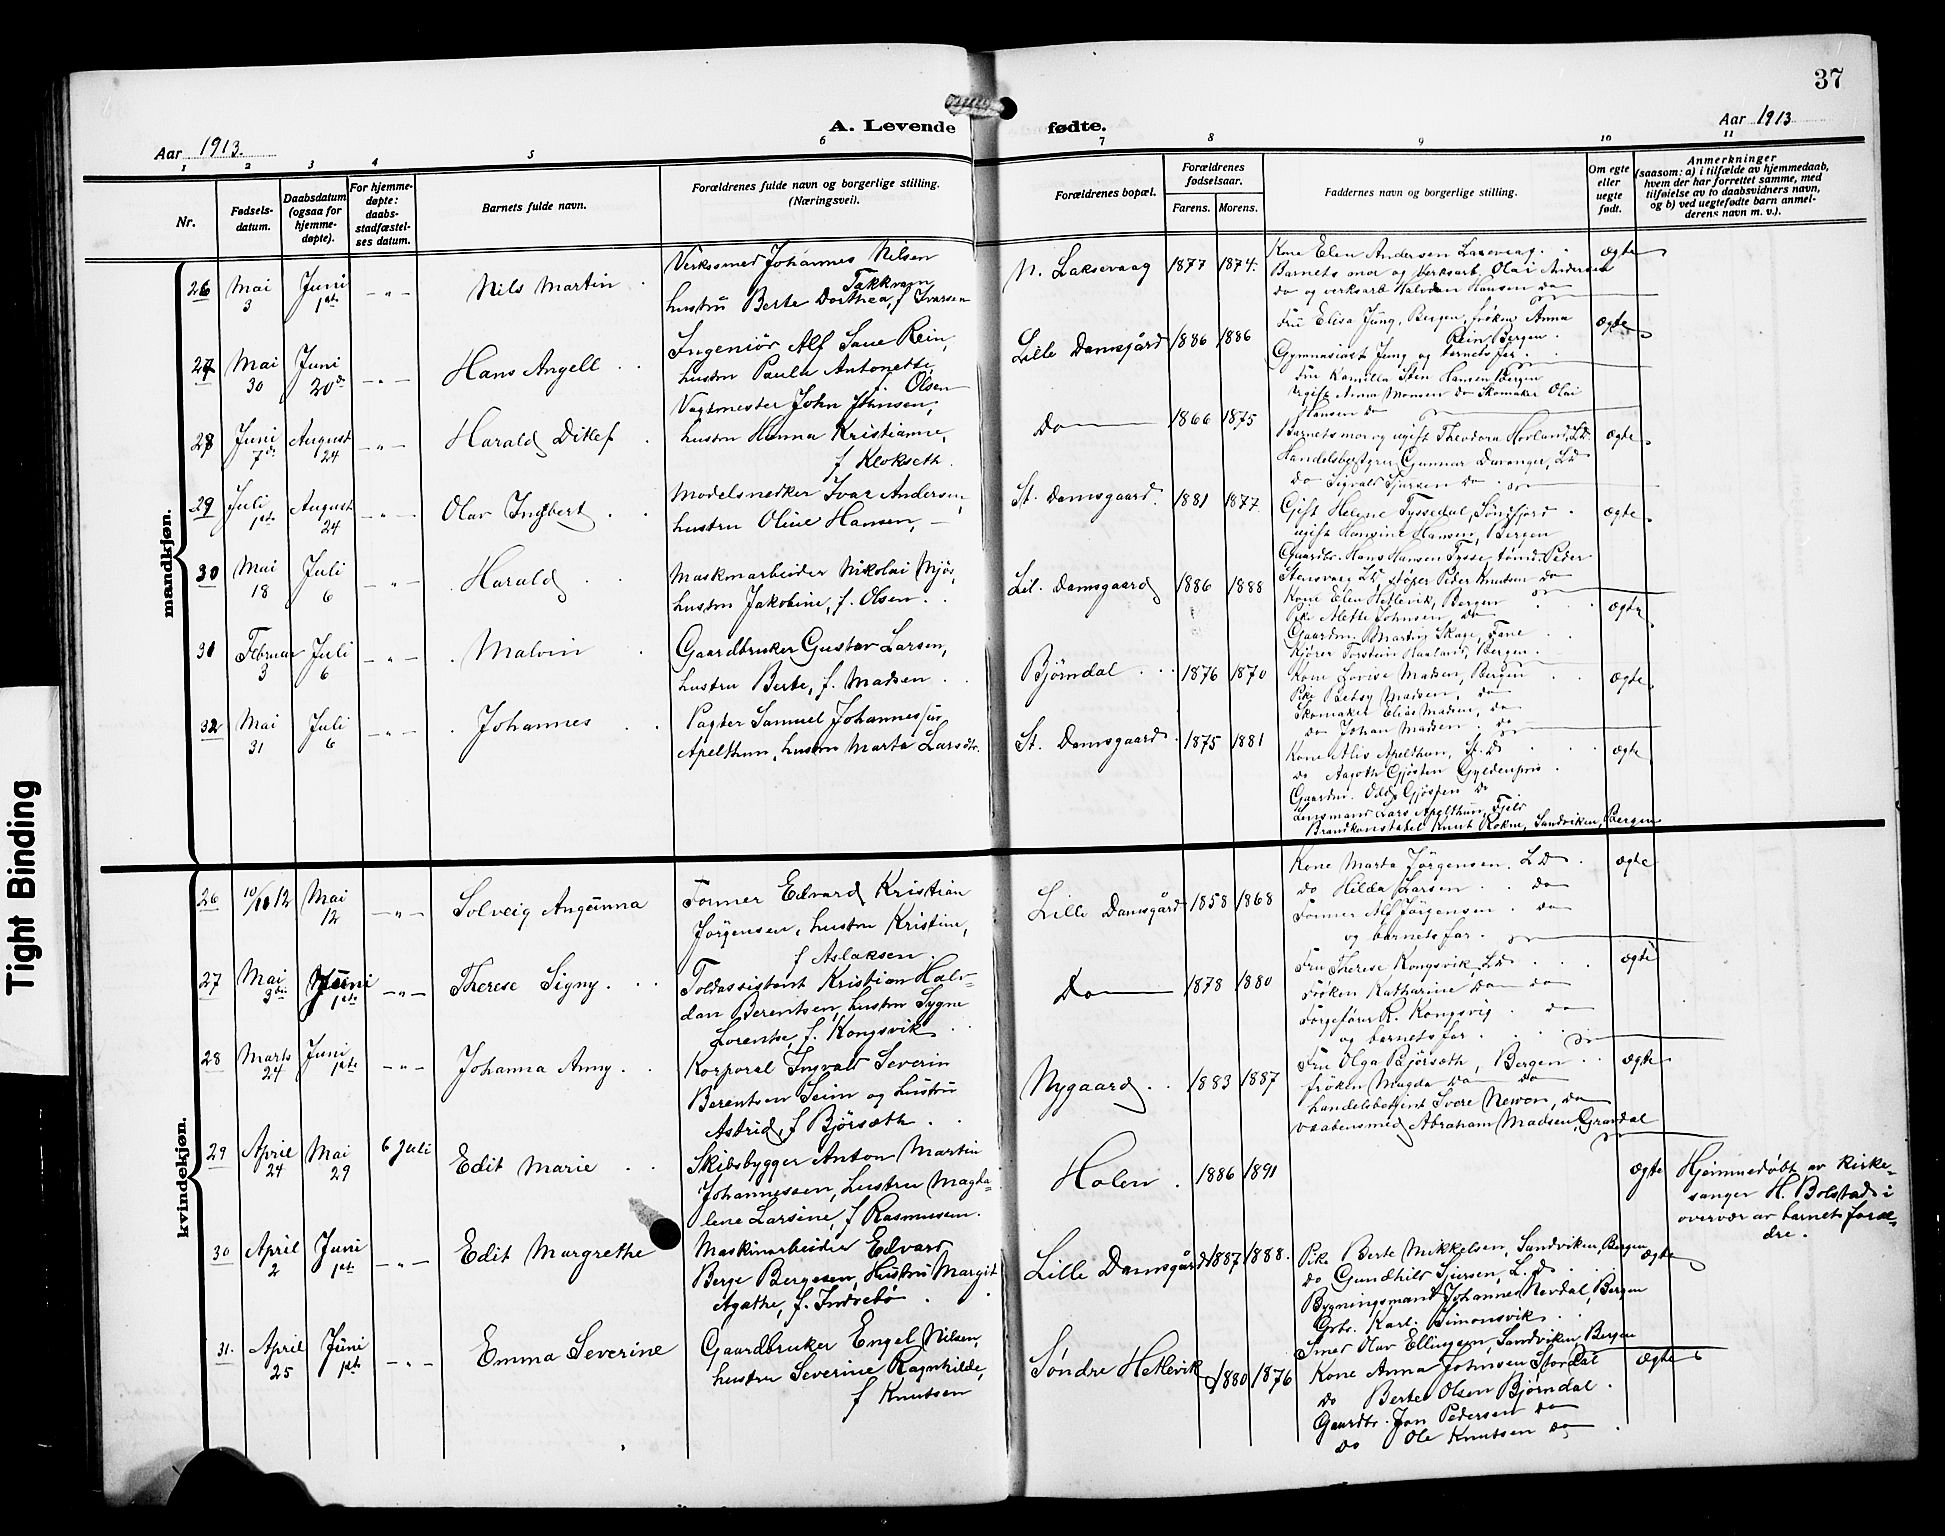 37
A. Levende fødte.
Aar 1913.
Aar 1913
1 2 3 4 5 6 7 8 9 10 11
Nr.
Fødsels-
datum.
Daabsdatum
(ogsaa for
hjemme-
døpte).
For hjemme-
døpte:
daabs-
stadfæstel-
ses datum.
Barnets fulde navn.
Forældrenes fulde navn og borgerlige stilling.
(Næringsvei).
Forældrenes bopæl.
Forældrenes
fødselsaar.
Farens. Morens.
Faddernes navn og borgerlige stilling.
Om egte
eller
uegte
født.
Anmerkninger
(saasom: a) i tilfælde av hjemmedaab,
hvem der har forrettet samme, med
tilføielse av to daabsvidners navn,
og b) ved uegtefødte barn anmel-
derens navn m. v.).
mandkjøn.
26 Mai 3 Juni 1ste — " — Nils Martin
Verkssmed Johannes Nilsen
Takkvam
hustru Berte Dorthea, f Ivarsen
N. Laksevaag 1877 1874.
Kone Elen Andersen Laxevaag.
Barnets mor og verksarb. Olai Andersen
do og verksarb Halvdan Hansen do
ægte
27 Mai 30 Juni 20de — " — Hans Angell
Ingeniør Alf Saue Rein,
hustru Paula Antonette,
f. Olsen
Lille Damsgård 1886 1886
Fru Elisa Jung, Bergen, frøken Anna
Rein, Bergen.
Gymnasiast Jung og barnets far.
ægte
28 Juni 7de August 24 — " — Harald Ditlef
Vagtmester John Johnsen,
hustru Hanna Kristianne,
f Klokseth.
Do 1866 1875
Fru Kamilla Sten Hansen, Bergen
Ugift Anna Monsen do Skomaker Olai
Hansen do
ægte
29 Juli 1ste August 24 — " — Olav Ingbert
Modelsnedker Ivar Andersen,
hustru Oline Hansen,
St. Damsgaard. 1881 1877.
Barnets mor og ugift Theodora Hovland, L.D.
Handelsbestyrer Gunnar Daranger, LD
do Sigvald Sjursen do
ægte
30 Mai 18 Juli 6 — " — Harald
Maskinarbeider Nikolai Mjøs,
hustru Jakobine, f. Olsen.
Lil. Damsgaard 1886 1888
Gift Helene Tyssedal, Søndfjord
ugift Hansine Hansen, Bergen
Gaardbr. Hans Hansen Tysse, tømm. Peder
Stensvaag LD, støper Peder Knutsen do
ægte
31 Februar 3 Juli 6 — " — Malvin
Gaardbruker Gustav Larsen,
hustru Berte, f. Madsen
Bjørndal 1876 1870
Kone Elen Hetlevik, Bergen
Pike Alette Johnsen do
Gaardm. Martin Skage, Fane
Kjører Torstein Haaland, Bergen.
ægte
32 Mai 31 Juli 6 — " — Johannes
Pagter Samuel Johannessen
Apelthun, hustru Marta Larsdtr.
St. Damsgaard. 1875 1881
Kone Lovise Madsen, Bergen
Pike Betsy Madsen, do
Skomaker Elias Madsen, do
do Johan Madsen. do
Kone Alis Apelthun, St. D
do Aagoth Gjøsten Gyldenpris
Gaardm. Odd Gjøsten do
Lensmand Lars Apelthun, Fjeld
Brandkonstabel Knut Rokne, Sandviken, Bergen
ægte
kvindekjøn.
26 10/10 12 Mai 12 — " — Solveig Angunna
Former Edvard Kristian
Jørgensen, hustru Kristine,
f Aslaksen.
Lille Damsgård 1858 1868
Kone Marta Jørgensen. LD
do Hilda Larsen do
Former Alf Jørgensen do
og barnets far.
ægte
27 Mai 3die Juni 1ste — " — Therese Signy.
Toldassistent Kristian Halv-
dan Berentsen, hustru Sygne
Lorentse, f. Kongsvik
Do 1878 1880
Fru Therese Kongsvik, LD
Frøken Katharine do do
Forgefører R. Kongsvig do
og barnets far.
ægte
28 Marts 24 Juni 1ste — " — Johanna Anny.
Korporal Ingvald Severin
Berentsen Seim og hustru
Astrid, f Bjørsæth.
Nygaard. 1883 1887
Fru Olga Bjørsæth, Bergen
frøken Magda do do
handelsbetjent Svere Newon, do
vaabensmed Abraham Madsen, Gravdal
ægte
29 April 24 Mai 29 6 Juli Edit Marie
Skibsbygger Anton Martin
Johannessen, hustru Magda-
lene Larsine, f Rasmussen.
Holen. 1886 1891
ægte
Hjemmedøbt av kirke-
sanger H. Bolstad i
overvær av barnets foræl-
dre.
30 April 2 Juni 1ste — " — Edit Margrethe
Maskinarbeider Edvard
Berge Bergesen, Hustru Margit
Agathe, f. Indrebø
Lille Damsgård 1887 1888.
Pike Berte Mikkelsen, Sandviken, Bergen
do Gundhild Sjursen, L. D.
Bygningsmand Johannes Nordal, Bergen
Grbr. Karl. Simonsvik.
Smed Olav Ellingsen, Sandviken, Bergen
ægte
31. April 25 Juni 1ste — " — Emma Severine
Gaardbruker Engel Nilsen,
hustru Severine Ragnhilde,
f Knutsen
Søndre Hetlevik 1880 1876
Kone Anna Johnsen, Stordal
do Berte Olsen Bjørndal.
Gaardbr. Jon Pedersen do
do Ole Knutsen do
ægte
Tight Binding